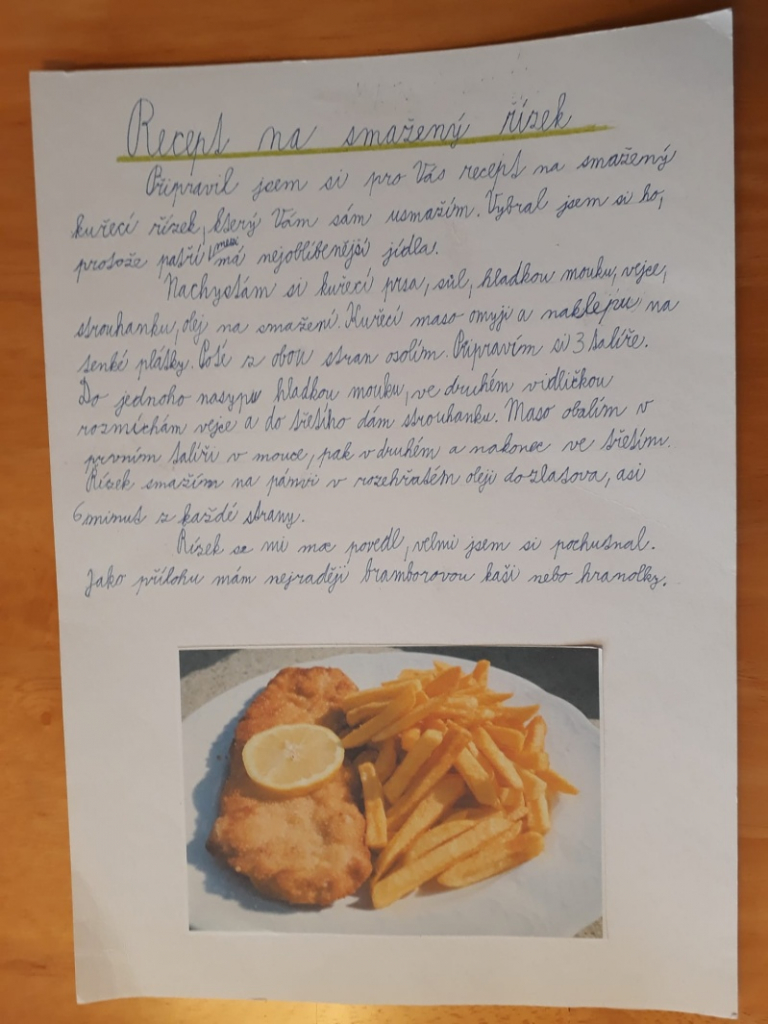 Recept na smažený řízek
Připravil jsem si pro Vás recept na smažený
kuřecí řízek, který Vám sám usmažím. Vybral jsem si ho,
protože patří mezi má nejoblíbenější jídla.
Nachystám si kuřecí prsa, sůl, hladkou mouku, vejce,
strouhanku, olej na smažení. Kuřecí maso omyji a naklepu na
tenké plátky. Poté z obou stran osolím. Připravím si 3 talíře.
Do jednoho nasypu hladkou mouku, ve druhém vidličkou
rozmíchám vejce a do třetího dám strouhanku. Maso obalím v
prvním talíři v mouce, pak v druhém a nakonec ve třetím.
Řízek smažím na pánvi v rozehřátém oleji dozlatova, asi
6 minut z každé strany.
Řízek se mi moc povedl, velmi jsem si pochutnal.
Jako přílohu mám nejraději bramborovou kaši nebo hranolky.